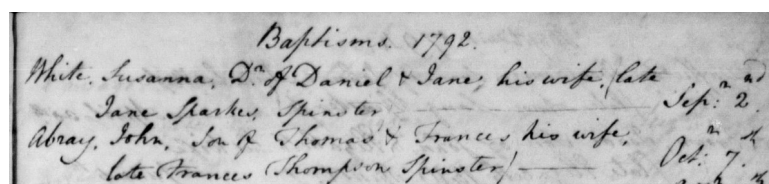 Baptisms. 1792.
White. Susanna, Dr. of Daniel & Jane, his wife, (late
Jane Sparkes, Spinster Sep:r 2nd.
Abray, John, Son of Thomas & Frances his wife,
late Frances Thompson Spinster) Oct:r 7th.